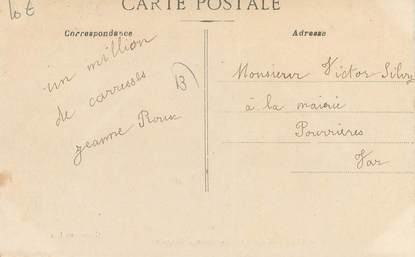 10€
CARTE POSTALE
Correspondance
Adresse
un million
de carresses
Jeanne Roux
13
Monsieur Victor Silvy
à la mairie
Pourrières
Var